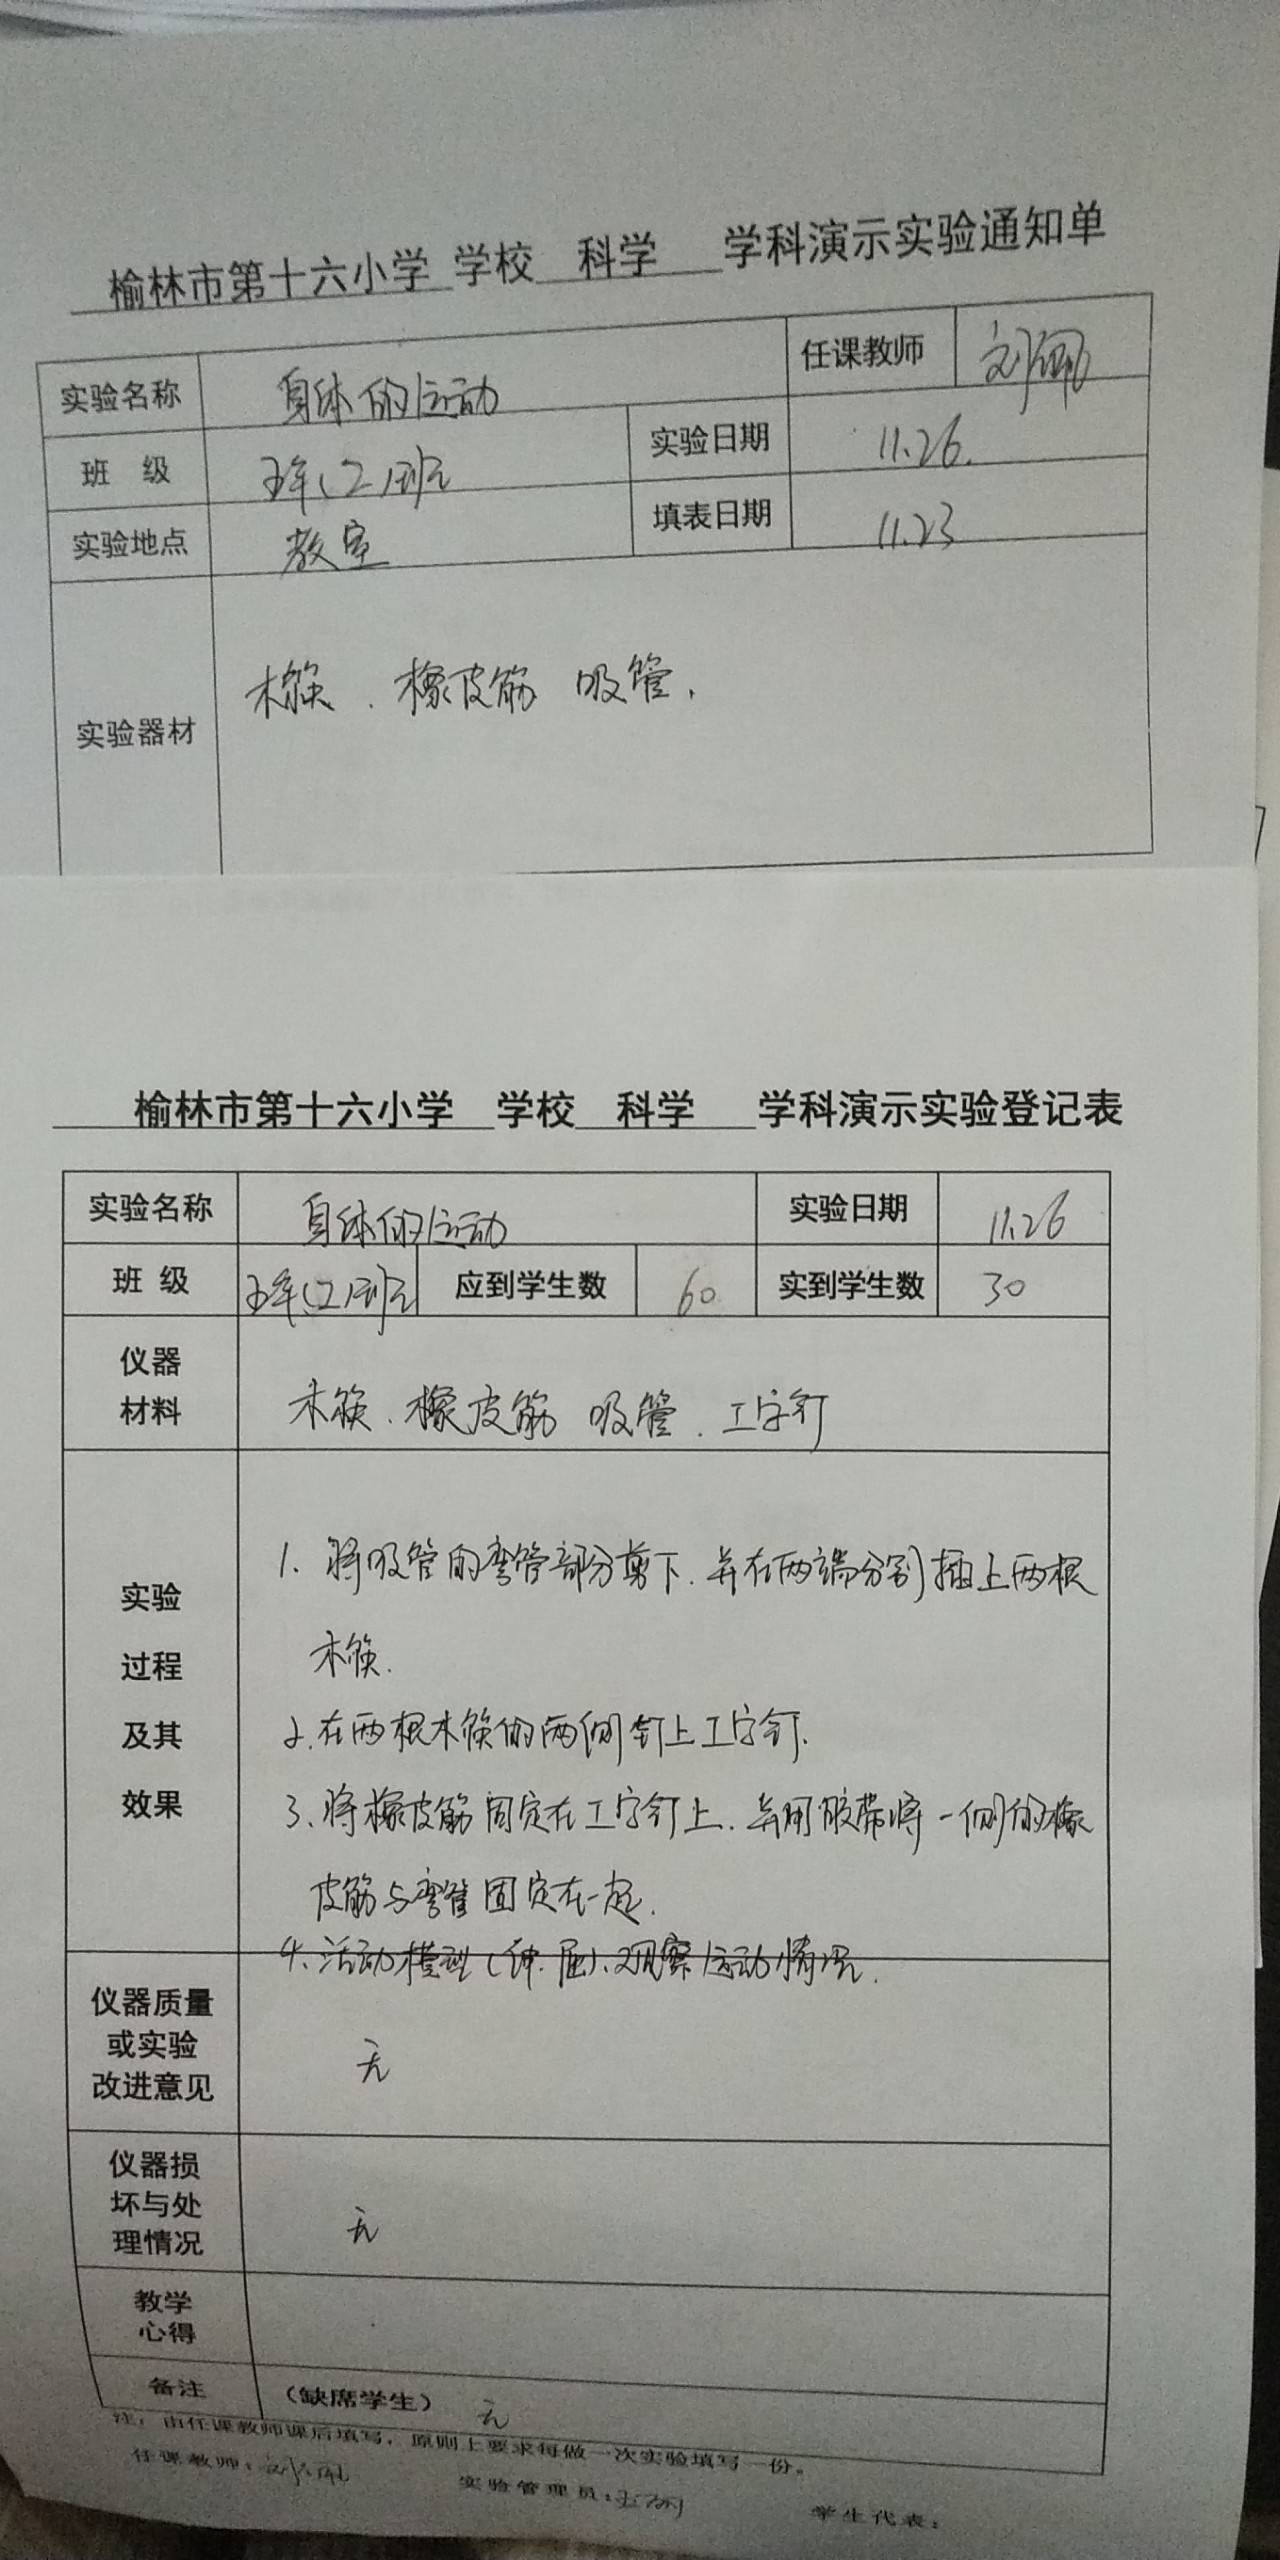 榆林市第十六小学 学校 科学 学科演示实验通知单
实验名称 身体的运动 任课教师 刘
班 级 五年(2)班 实验日期 11.26.
实验地点 教室 填表日期 11.23
实验器材 木筷、橡皮筋 吸管、
榆林市第十六小学 学校 科学 学科演示实验登记表
实验名称 身体的运动 实验日期 11.26
班 级 五年(2)班 应到学生数 60 实到学生数 30
仪器
材料
木筷、橡皮筋 吸管、工字钉
实验
过程
及其
效果
1、将吸管的弯管部分剪下、并在两端分别插上两根
木筷.
2、在两根木筷的两侧钉上工字钉.
3、将橡皮筋固定在工字钉上、并用胶带将一侧的橡
皮筋与弯管固定在一起.
4、活动模型(伸、屈)、观察运动情况.
仪器质量
或实验
改进意见
无
仪器损
坏与处
理情况
无
教学
心得
备注 (缺席学生) 无
注:由任课教师课后填写,原则上要求每做一次实验填写一份。
任课教师:刘 实验管理员: 学生代表: